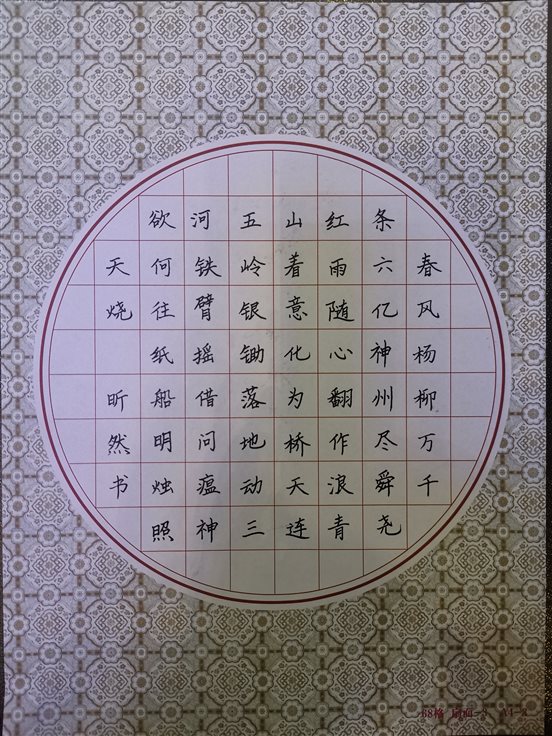 春风杨柳万千
条六亿神州尽舜尧
红雨随心翻作浪青
山着意化为桥天连
五岭银锄落地动三
河铁臂摇借问瘟神
欲何往纸船明烛照
天烧
昕然书
68格 扇面-3 A4-2